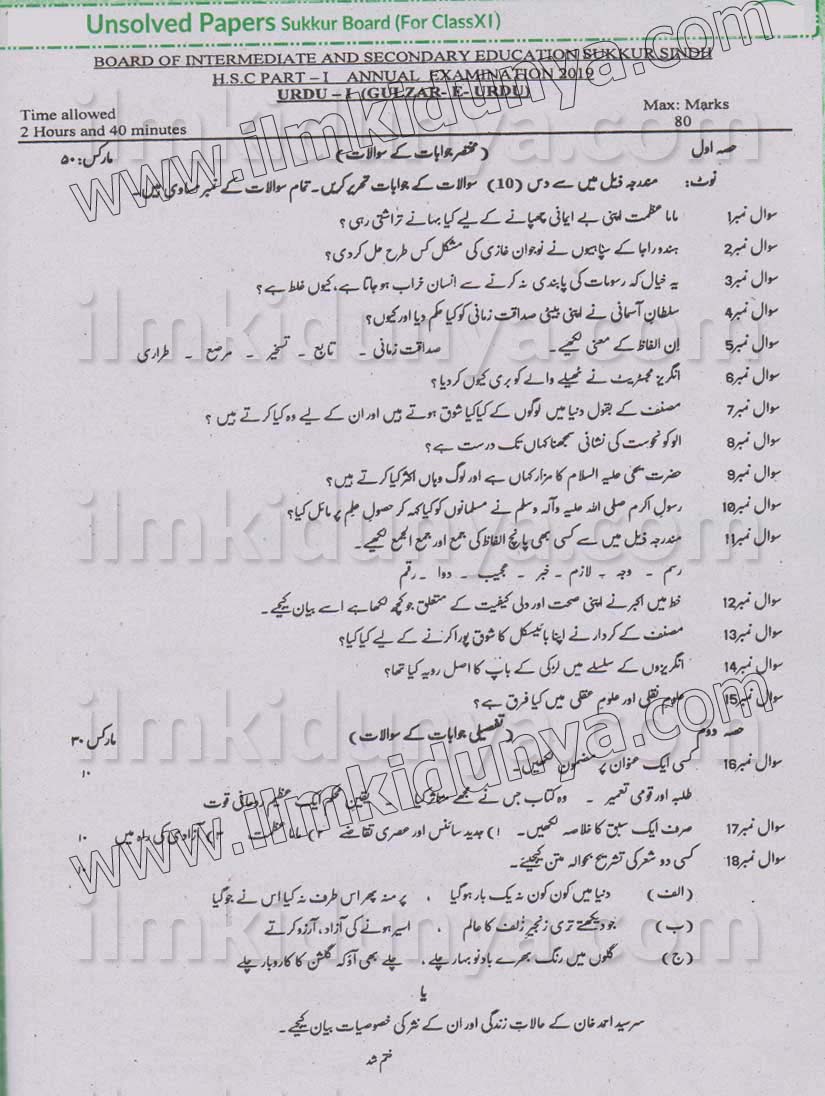 Unsolved Papers Sukkur Board (For ClassXI)
BOARD OF INTERMEDIATE AND SECONDARY EDUCATION SUKKUR SINDH
H.S.C PART – I ANNUAL EXAMINATION 2019
URDU – I (GULZAR- E- URDU)
Time allowed Max: Marks
2 Hours and 40 minutes 80
حصہ اول (مختصر جوابات کے سوالات) مارکس: ۵۰
نوٹ: مندرجہ ذیل میں سے دس (10) سوالات کے جوابات تحریر کریں۔ تمام سوالات کے نمبر مساوی ہیں۔
سوال نمبر1 ماما عظمت اپنی بے ایمانی چھپانے کے لیے کیا بہانے تراشتی رہی؟
سوال نمبر2 ہندو راجا کے سپاہیوں نے نوجوان غازی کی مشکل کس طرح حل کردی؟
سوال نمبر3 یہ خیال کہ رسومات کی پابندی نہ کرنے سے انسان خراب ہوجاتا ہے، کیوں غلط ہے؟
سوال نمبر4 سلطانِ آسمانی نے اپنی بیٹی صداقت زمانی کو کیا حکم دیا اور کیوں؟
سوال نمبر5 اِن الفاظ کے معنی لکھیے۔ صداقت زمانی ۔ تابع ۔ تسخیر ۔ مرصع ۔ طراری
سوال نمبر6 انگریز مجسٹریٹ نے ٹھیلے والے کو بری کیوں کردیا؟
سوال نمبر7 مصنف کے بقول دنیا میں لوگوں کے کیا کیا شوق ہوتے ہیں اور ان کے لیے وہ کیا کرتے ہیں ؟
سوال نمبر8 الو کو نحوست کی نشانی سمجھنا کہاں تک درست ہے؟
سوال نمبر9 حضرت یحییٰ علیہ السلام کا مزار کہاں ہے اور لوگ وہاں اکثر کیا کرتے ہیں؟
سوال نمبر10 رسولِ اکرم صلی اللہ علیہ وآلہ وسلم نے مسلمانوں کو کیا کہہ کر حصولِ علم پر مائل کیا؟
سوال نمبر11 مندرجہ ذیل میں سے کسی بھی پانچ الفاظ کی جمع اور جمع الجمع لکھیے۔
رسم ۔ وجہ ۔ لازم ۔ خبر ۔ مجیب ۔ دوا ۔ رقم
سوال نمبر12 خط میں اکبر نے اپنی صحت اور دلی کیفیت کے متعلق جو کچھ لکھا ہے اسے بیان کیجیے۔
سوال نمبر13 مصنف کے کردار نے اپنا بائیسکل کا شوق پورا کرنے کے لیے کیا کیا؟
سوال نمبر14 انگریزوں کے سلسلے میں لڑکی کے باپ کا اصل رویہ کیا تھا؟
سوال نمبر15 علومِ نقلی اور علومِ عقلی میں کیا فرق ہے؟
حصہ دوم (تفصیلی جوابات کے سوالات) مارکس ۳۰
سوال نمبر16 کسی ایک عنوان پر مضمون لکھیں۔ ۱۰
طلبہ اور قومی تعمیر ۔ وہ کتاب جس نے مجھے متاثر کیا ۔ یقین محکم ایک عظیم روحانی قوت
سوال نمبر17 صرف ایک سبق کا خلاصہ لکھیں۔ ۱) جدید سائنس اور عصری تقاضے ۲) ماما عظمت ۳) آزادی کی راہ میں ۱۰
سوال نمبر18 کسی دو شعر کی تشریح بحوالہ متن کیجیئے۔
(الف) دنیا میں کون کون نہ یک بار ہوگیا ، پر منہ پھر اس طرف نہ کیا اس نے جو گیا
(ب) جو دیکھتے تری زنجیرِ زلف کا عالم ، اسیر ہونے کی آزاد، آرزو کرتے
(ج) گلوں میں رنگ بھرے بادِ نو بہار چلے ، چلے بھی آؤ کہ گلشن کا کاروبار چلے
یا
سرسید احمد خان کے حالاتِ زندگی اور ان کے نثر کی خصوصیات بیان کیجیے۔
ختم شد
www.ilmkidunya.com
www.ilmkidunya.com
ilmkidunya.com
ilmkidunya.com
ilmkidunya.com
ilmkidunya.com
ilmkidunya.com